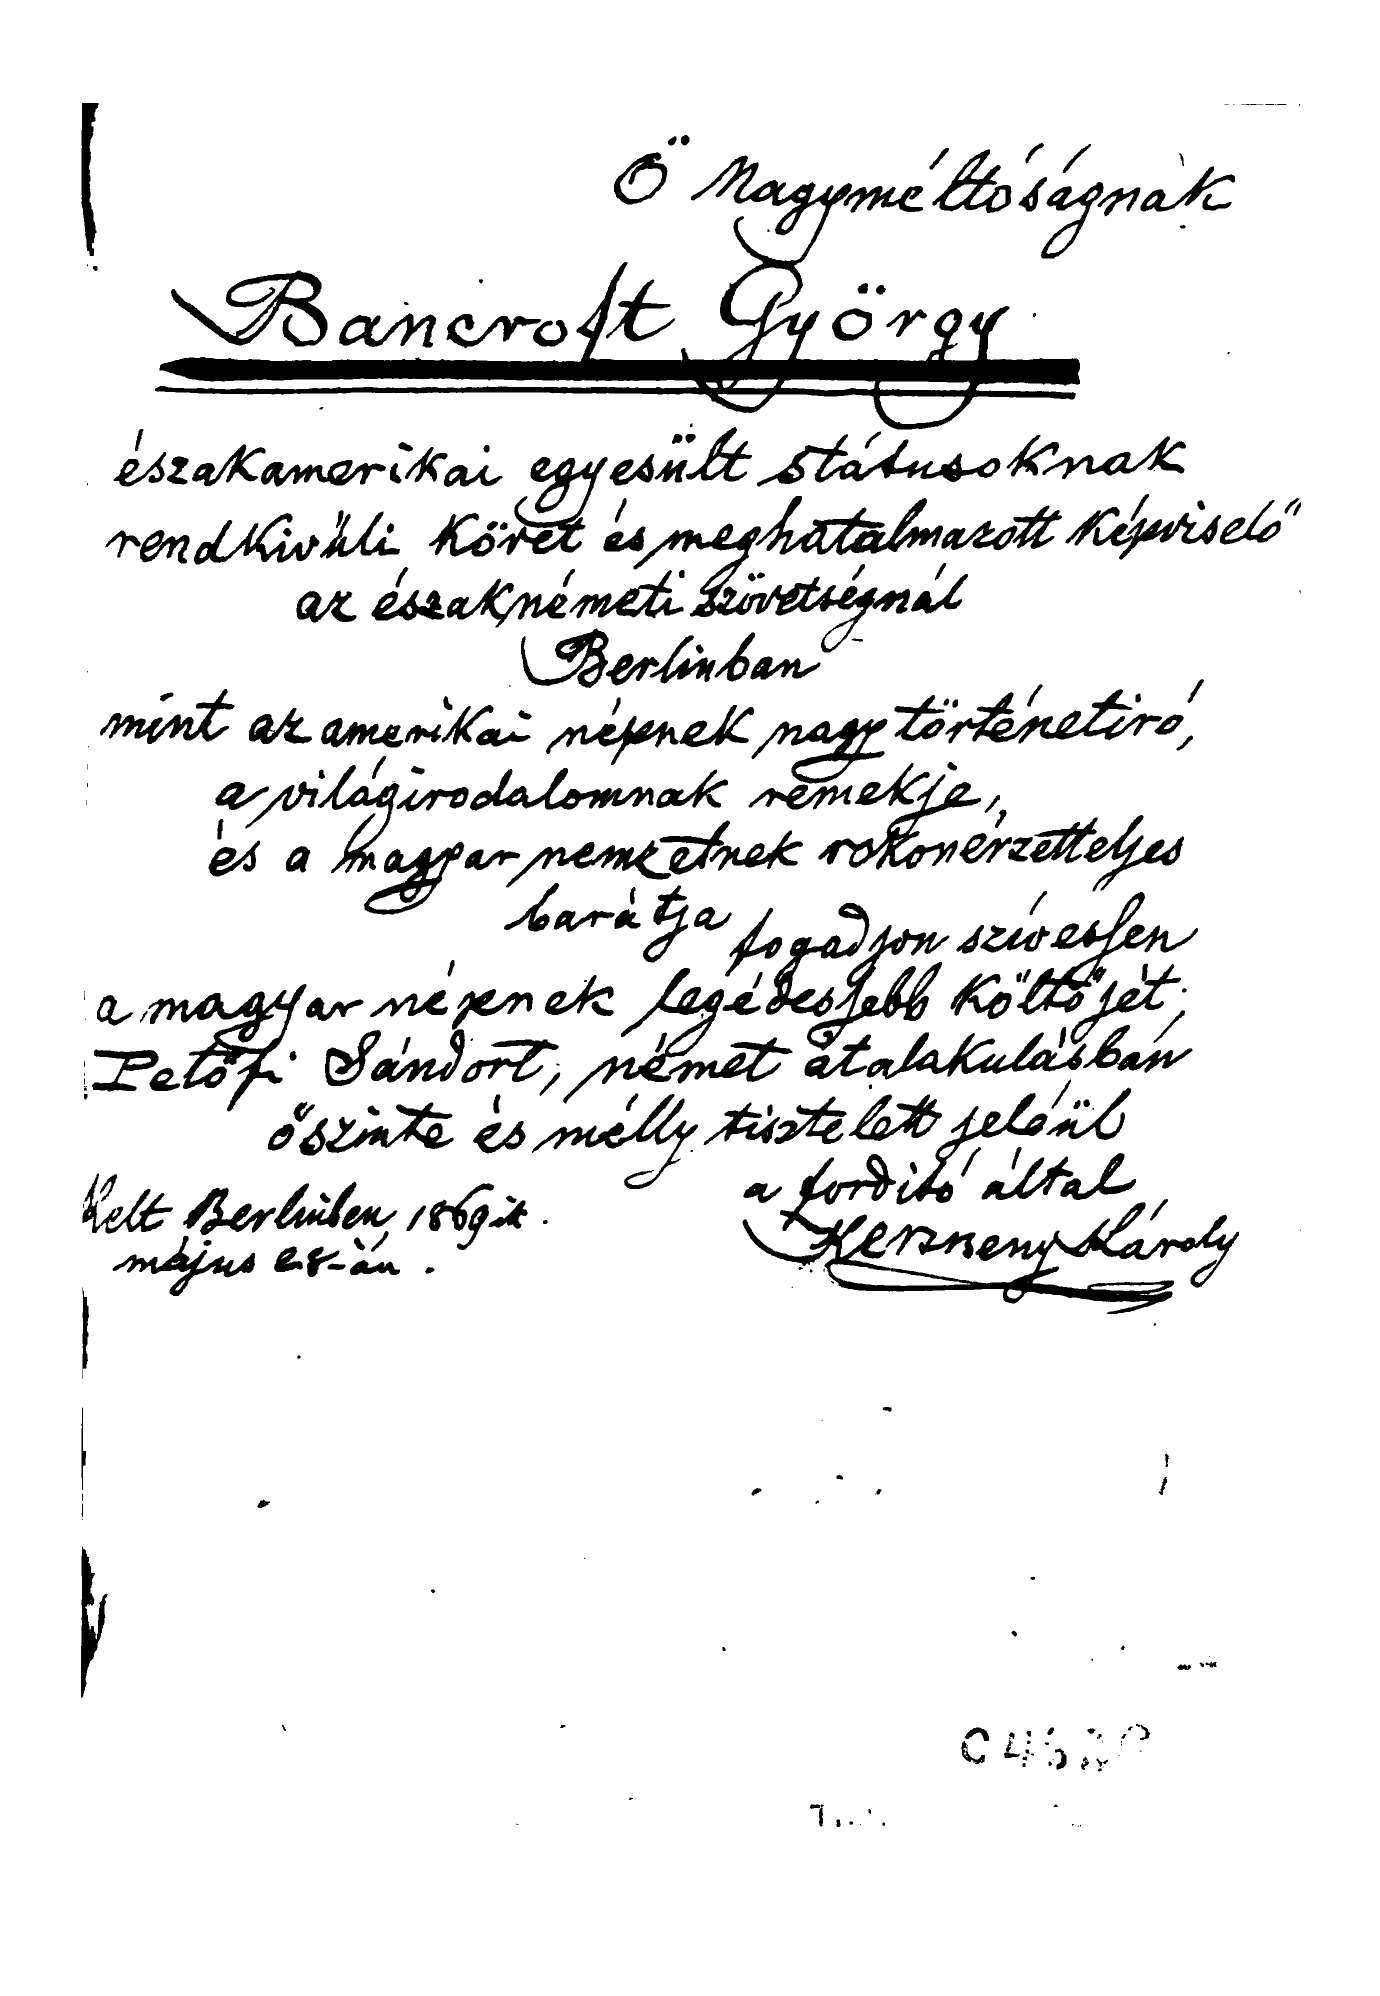 Ő Magyméltóságnak
Bancroft György
északamerikai egyesült státusoknak
rendkivüli követ és meghatalmazott képviselő
az északnémeti szövetségnál
Berlinban
mint az amerikai népnek nagy történetiró,
a világirodalomnak remekje,
és a magyar nemzetnek rokonérzetteljes
barátja fogadjon szívessen
a magyar népnek legédesjebb költőjét,
Petőfi Sándort, német átalakulásbán
őszinte és mélly tisztelett jeléül
a forditó által
Kelt Berlinben, 1869ik.
Kertbeny Károly
május 28-án.